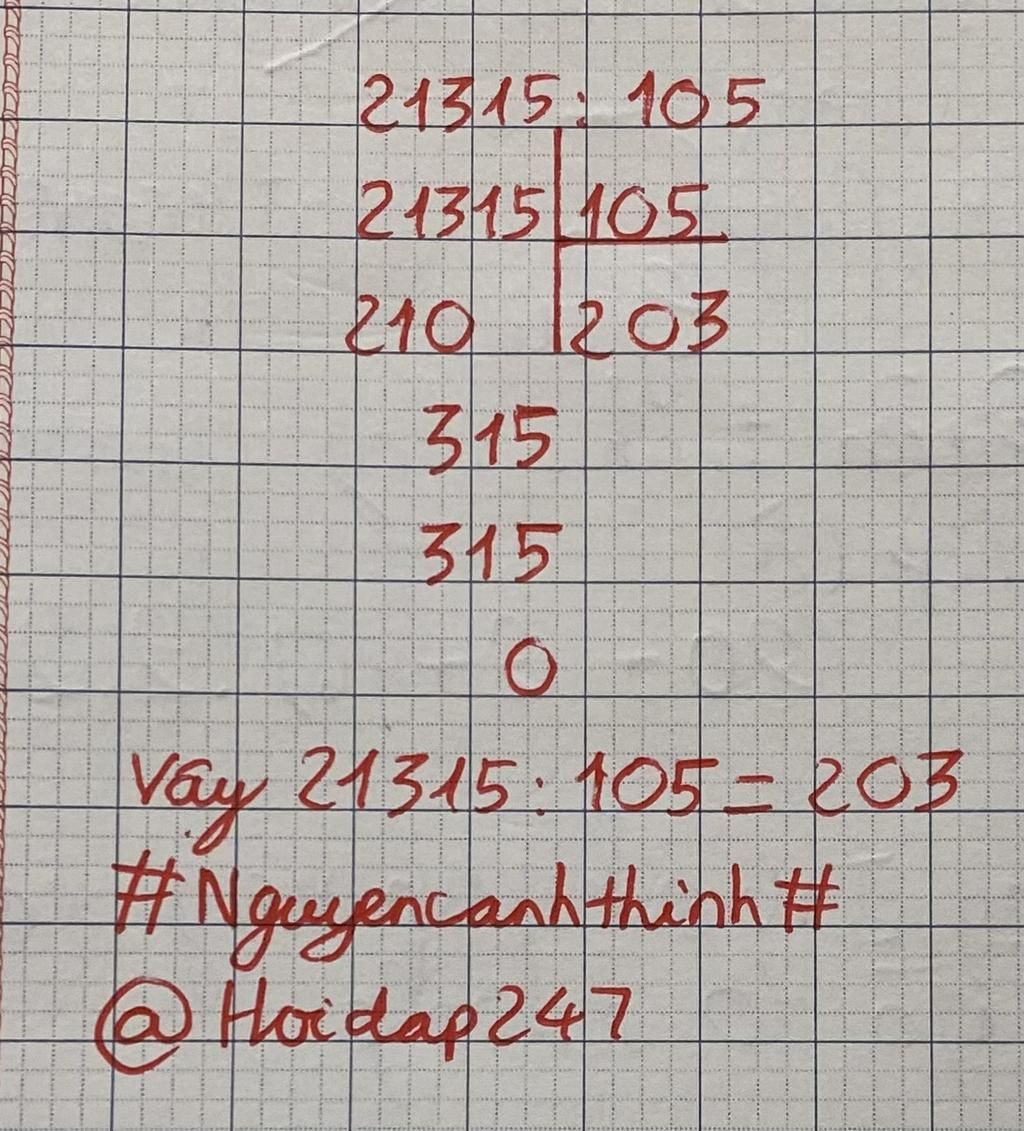 21315 : 105
21315 105
210 203
315
315
0
Vậy 21315 : 105 = 203
#Nguyencanhthinh#
@Hoidap247